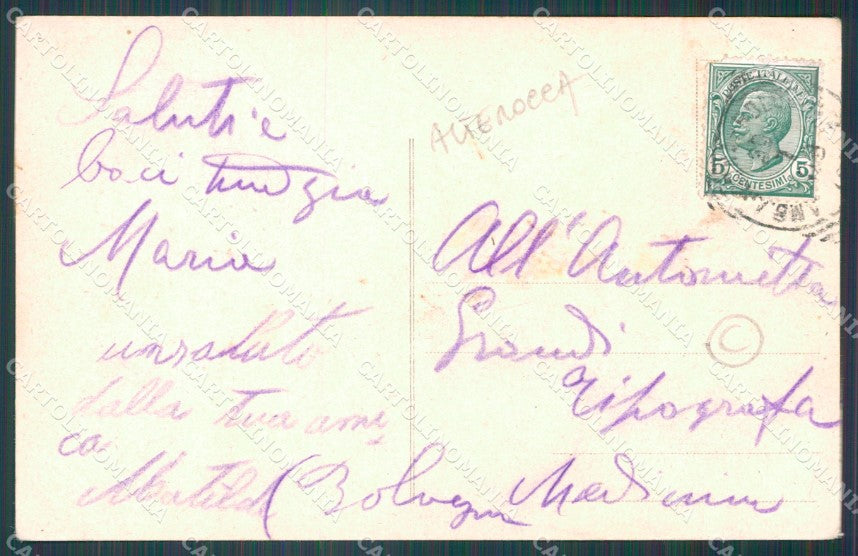 Saluti e
baci tua zia
Maria
un saluto
dalla tua ami
ca
Matilde
ALTEROCCA
POSTE ITALIANE
5 CENTESIMI 5
All'Antonietta
Grandi
Tipografa
(Bologna
C
CARTOLINOMANIA